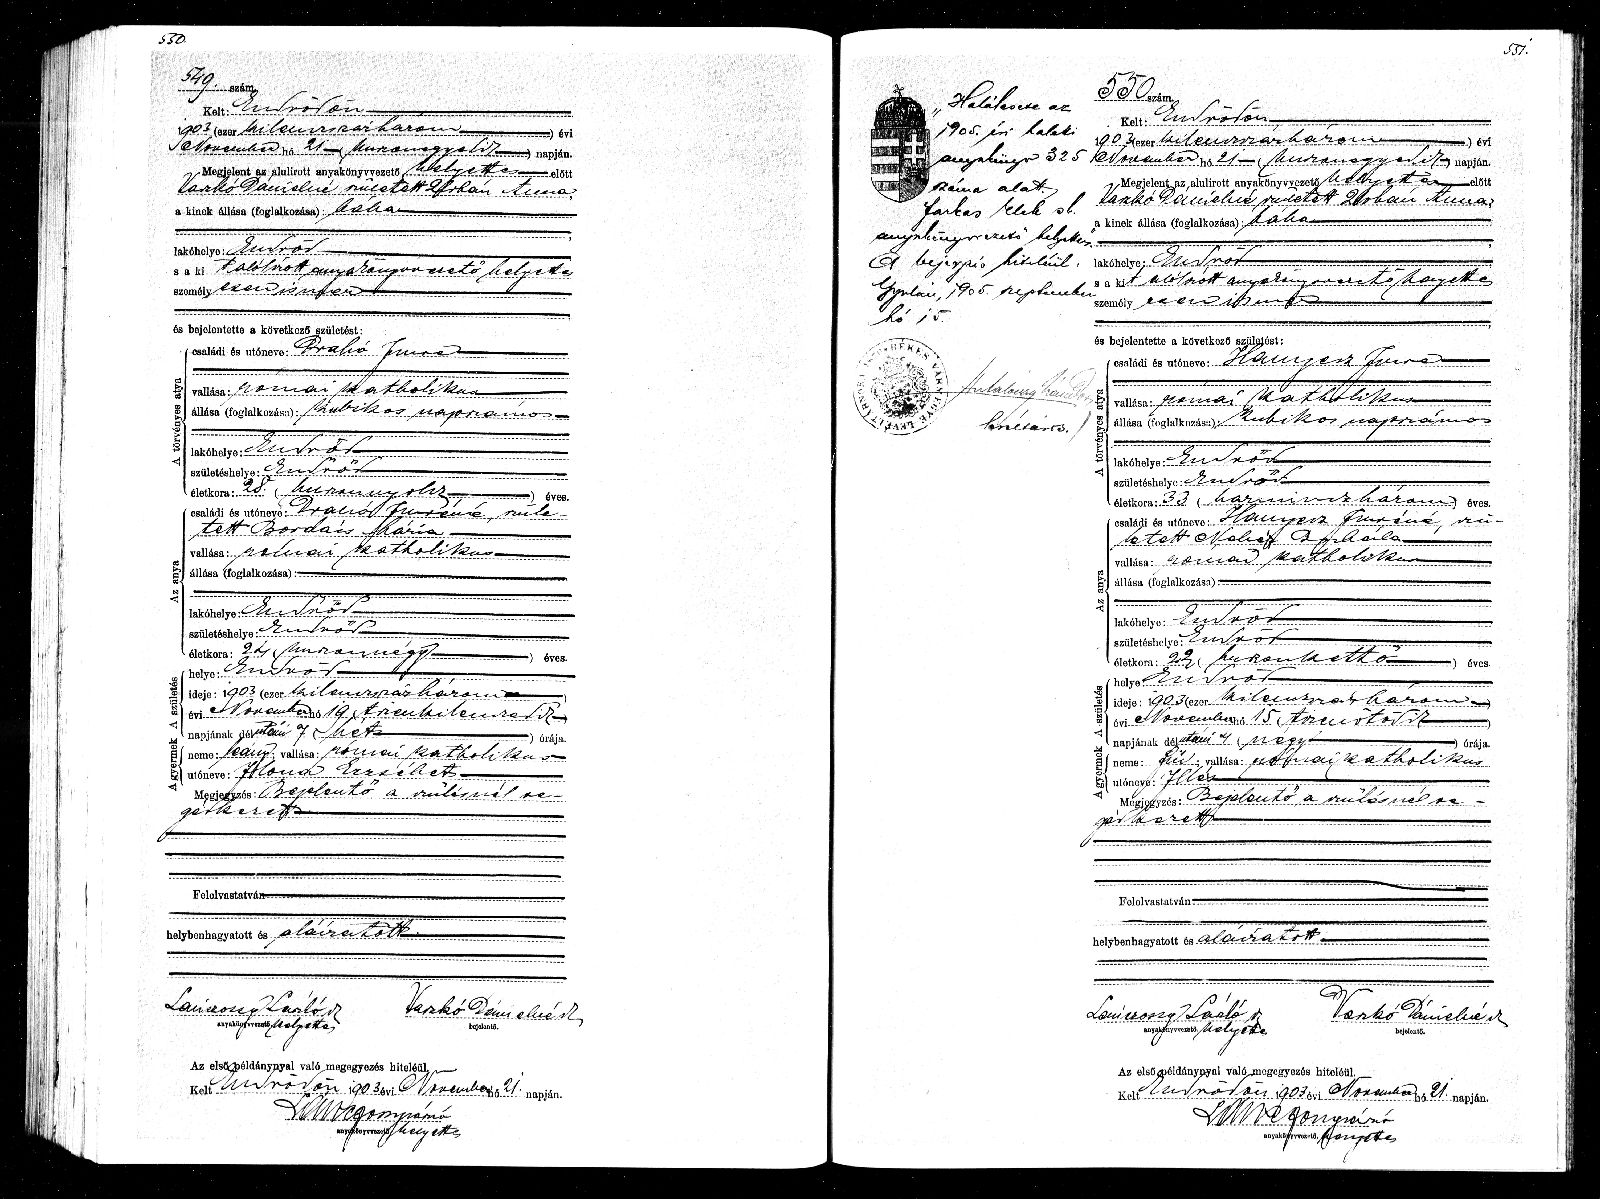 530.
549. szám.
Kelt: Endrődön
1903 (ezer kilenczszázhárom) évi
November hó 21 (huszonegyedik) napján.
Megjelent az alulirott anyakönyvvezető helyettes előtt
Varkó Dánielné született Urbán Anna
a kinek állása (foglalkozása): bába
lakóhelye: Endrőd
s a ki t alólirott anyakönyvvezető helyettes
személyesen ismer
és bejelentette a következő születést:
A törvényes atya
családi és utóneve: Imre
vallása: római katholikus
állása (foglalkozása): kubikos napszámos
lakóhelye: Endrőd
születéshelye: Endrőd
életkora: 28 (huszonnyolcz) éves.
Az anya
családi és utóneve: Imréné, szüle-
tett Bordás Mária
vallása: római katholikus
állása (foglalkozása):
lakóhelye: Endrőd
születéshelye: Endrőd
életkora: 24 (huszonnégy) éves.
A születés
helye: Endrőd
ideje: 1903 (ezer kilenczszázhárom)
évi November hó 19 (tizenkilenczedik)
napjának délutáni 7 (hét) órája.
A gyermek
neme: leány; vallása: római katholikus
utóneve: Ilona Erzsébet
Megjegyzés: Bejelentő a szülésnél se-
gédkezett
Felolvastatván
helybenhagyatott és aláiratott.
László sk Varkó Dánielné sk
anyakönyvvezető helyettes bejelentő.
Az első példánynyal való megegyezés hiteléül,
Kelt Endrődön 1903 évi November hó 21. napján.
anyakönyvvezető helyettes
551.
„Halálesete az
1905. évi halotti
anyakönyv 325
száma alatt
Farkas Elek sk.
anyakönyvvezető helyettes"
A bejegyzés hiteléül.
Gyulán, 1905. szeptember
hó 15.
levéltáros.
550 szám.
Kelt: Endrődön
1903 (ezer kilenczszázhárom) évi
November hó 21 (huszonegyedik) napján.
Megjelent az alulirott anyakönyvvezető helyettes előtt
Varkó Dánielné született Urbán Anna
a kinek állása (foglalkozása): bába
lakóhelye: Endrőd
s a ki t alólirott anyakönyvvezető helyettes
személyesen ismer
és bejelentette a következő születést:
A törvényes atya
családi és utóneve: Hanyecz Imre
vallása: római katholikus
állása (foglalkozása): kubikos napszámos
lakóhelye: Endrőd
születéshelye: Endrőd
életkora: 33 (harminczhárom) éves.
Az anya
családi és utóneve: Hanyecz Imréné, szü-
letett Borbála
vallása: római katholikus
állása (foglalkozása):
lakóhelye: Endrőd
születéshelye: Endrőd
életkora: 22 (huszonkettő) éves.
A születés
helye: Endrőd
ideje: 1903 (ezer kilenczszázhárom)
évi November hó 15 (tizenötödik)
napjának délutáni 4 (négy) órája.
A gyermek
neme: fiú; vallása: római katholikus
utóneve: Illés
Megjegyzés: Bejelentő a szülésnél se-
gédkezett
Felolvastatván
helybenhagyatott és aláiratott
László sk Varkó Dánielné sk
anyakönyvvezető helyettes bejelentő.
Az első példánynyal való megegyezés hiteléül.
Kelt Endrődön 1903 évi November hó 21. napján.
anyakönyvvezető, helyettes